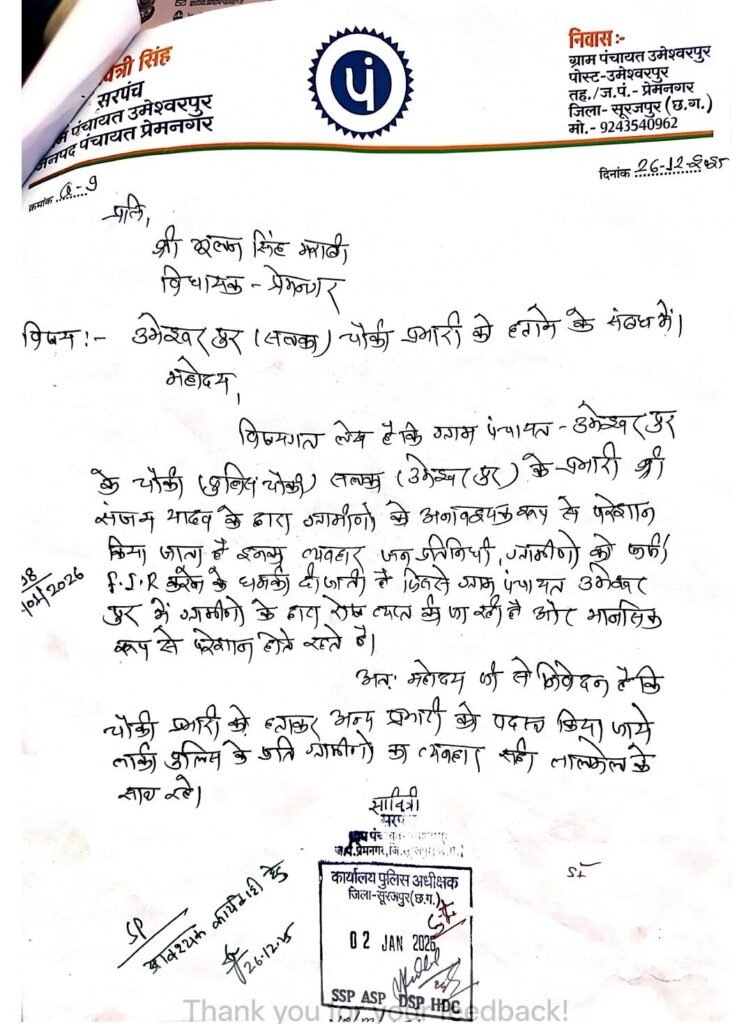 त्री सिंह
सरपंच
पंचायत उमेश्वरपुर
जनपद पंचायत प्रेमनगर
पं
निवास:-
ग्राम पंचायत उमेश्वरपुर
पोस्ट-उमेश्वरपुर
तह./ज.पं.- प्रेमनगर
जिला- सूरजपुर (छ.ग.)
मो.- 9243540962
क्रमांक Q-9
दिनांक 26-12-2025
प्रति,
श्री भूलन सिंह मरावी
विधायक - प्रेमनगर
विषय :- उमेश्वरपुर (तलका) चौकी प्रभारी को हटाने के संबध में।
महोदय,
विषयगत लेख है कि ग्राम पंचायत - उमेश्वरपुर
के चौकी (पुलिस चौकी) (उमेश्वरपुर) के प्रभारी श्री
संजय यादव के द्वारा ग्रामीणो को अनावश्यक रूप से परेशान
किया जाता है इनका व्यवहार जन प्रतिनिधी, ग्रामीणो को फर्जी
F.I.R करने के धमकी दी जाती है जिससे ग्राम पंचायत उमेश्वर
पुर में ग्रामीणो के द्वारा रोष व्यक्त की जा रही है और मानसिक
रूप से परेशान होते रहते है।
अतः महोदय जी से निवेदन है कि
चौकी प्रभारी को हटाकर अन्य प्रभारी को पदस्थ किया जाये
ताकी पुलिस के प्रति ग्रामीणो का व्यवहार सही तालमेल के
साथ रहे।
2026
सावित्री
सरपंच
SP
आवश्यक कार्यवाही हेतु
26.12.25
कार्यालय पुलिस अधीक्षक
जिला-सूरजपुर (छ.ग.)
02 JAN 2026
SSP ASP DSP HDG
Thank you for your feedback!